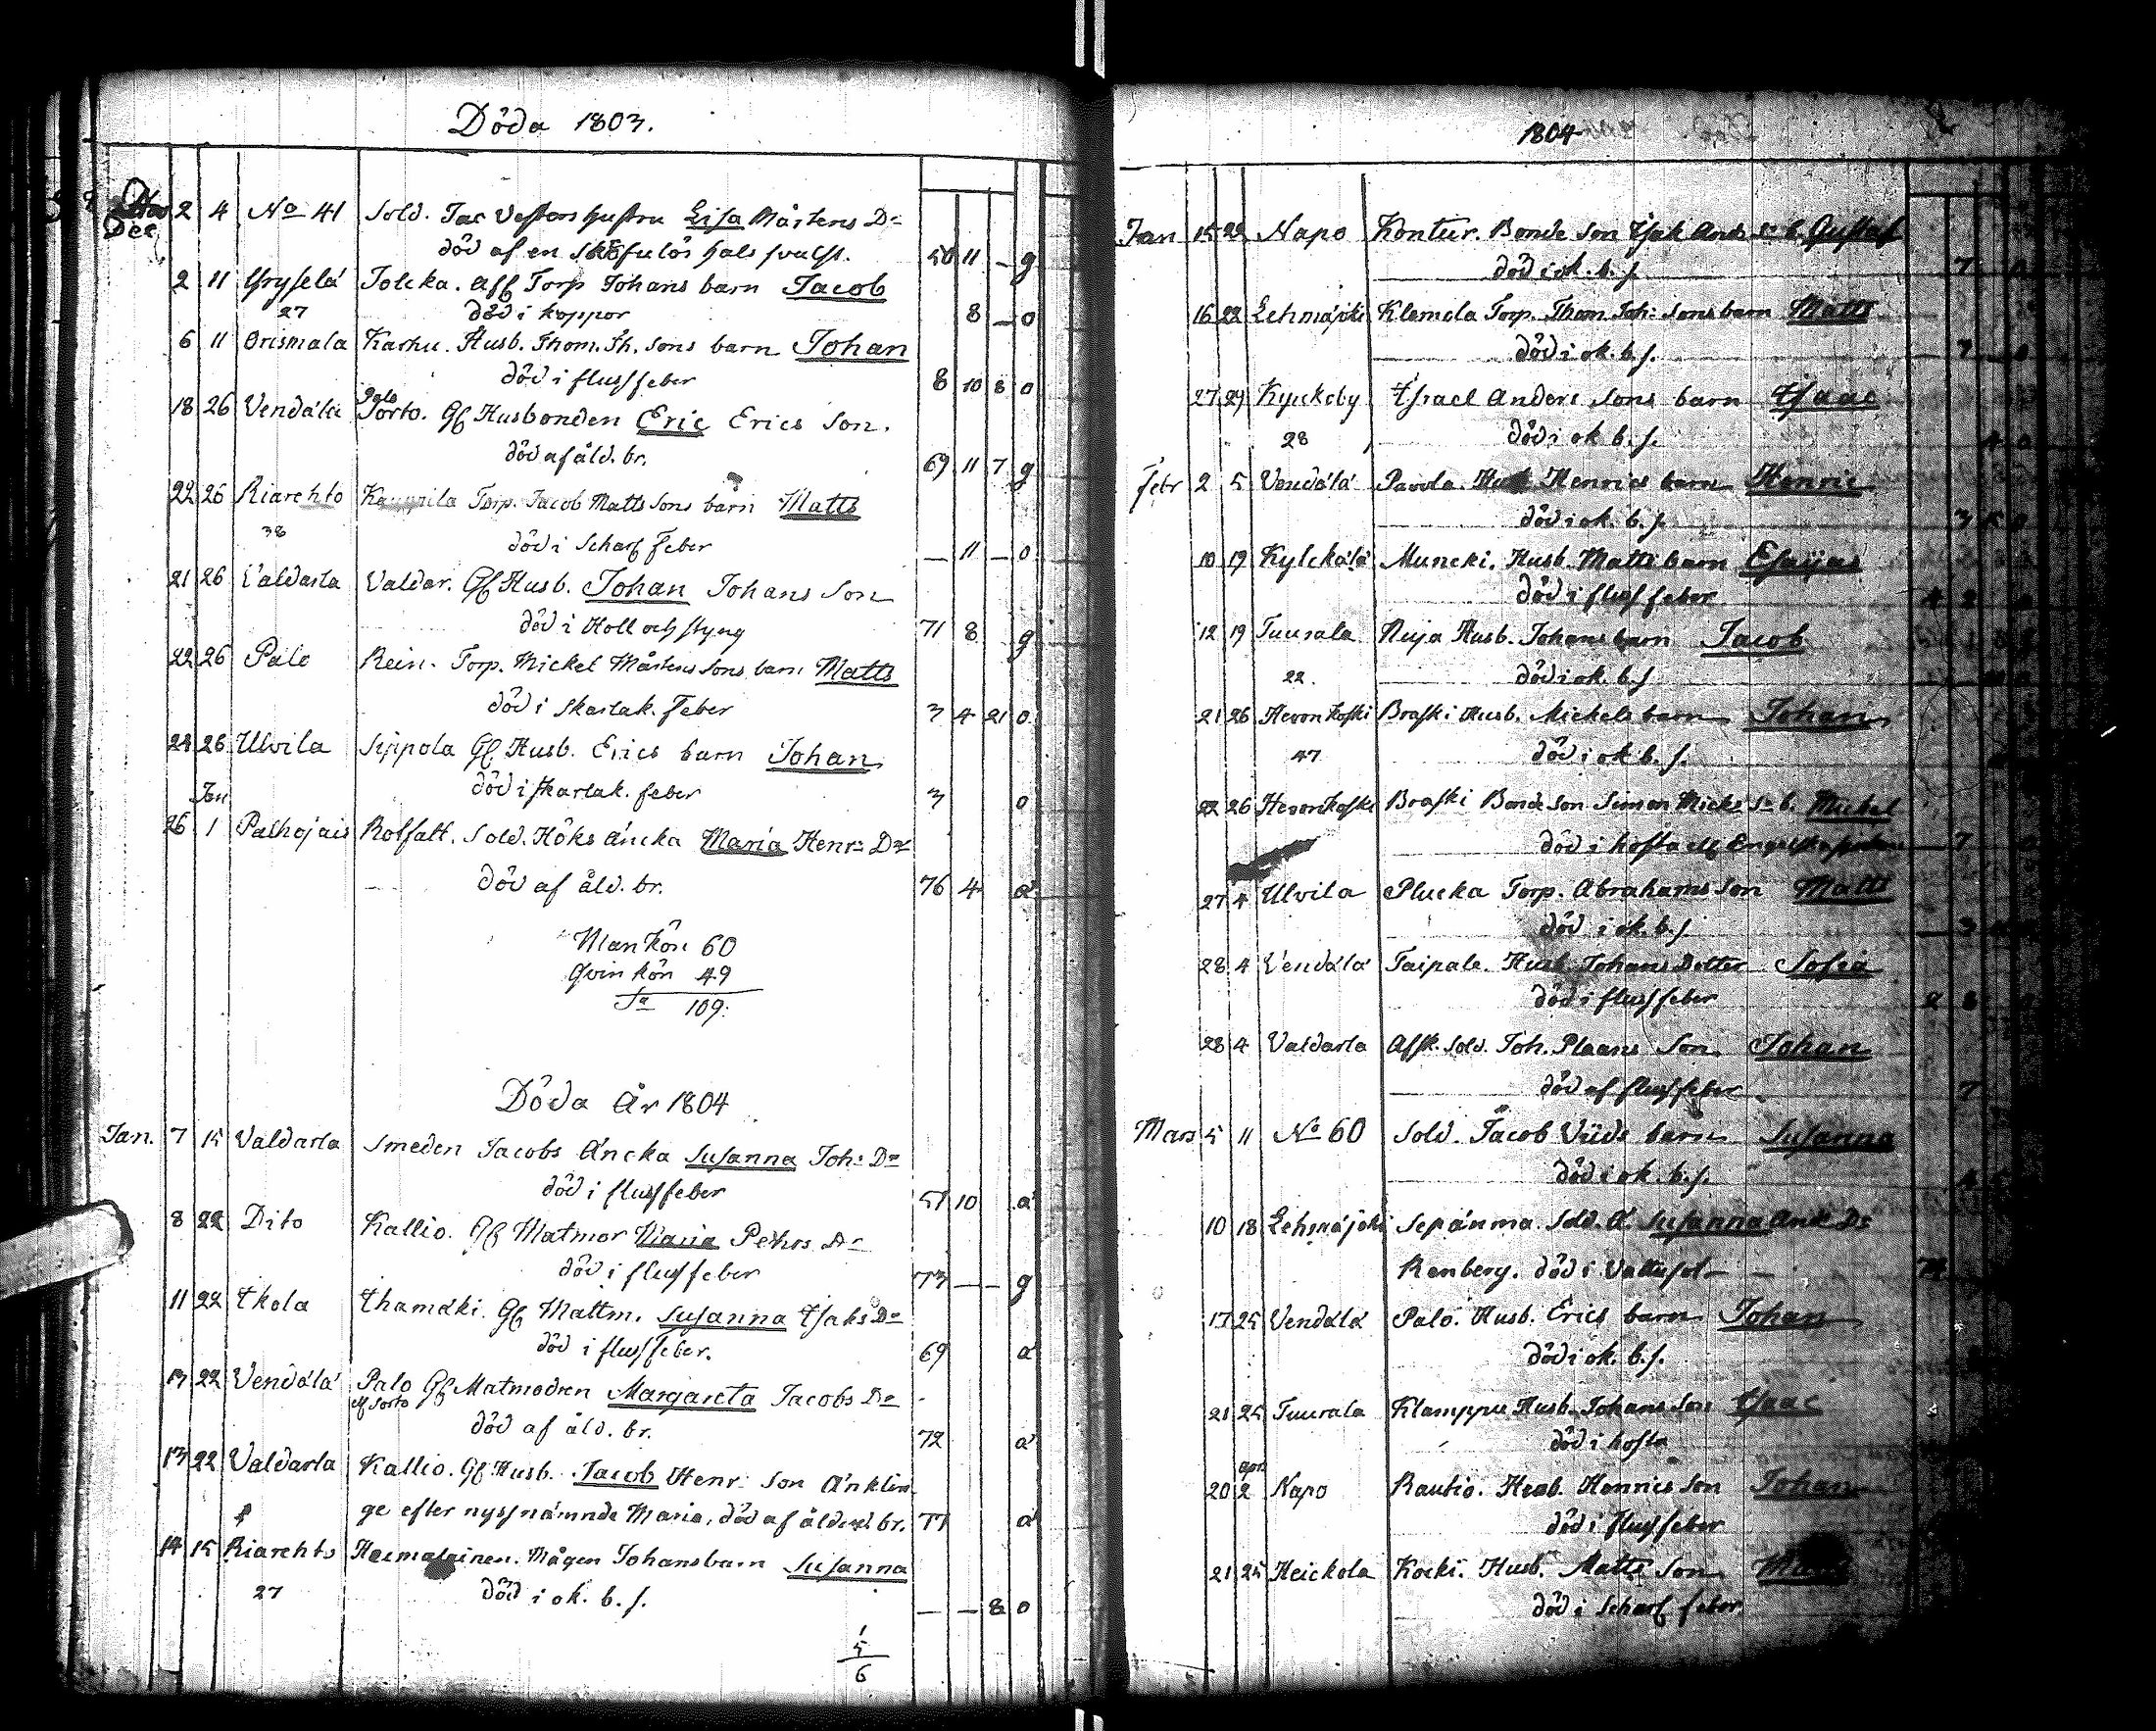 Döda 1803.
Dec 2 4 No 41 Sold. Jac Vesters hustru Lisa Mårtens Dr
död af en skrofulös hals svulst. 50 11 – g
2 11 Gryselä Jolcka. Aff Torp Johans barn Jacob
27 död i koppor 8 – o
6 11 Orismala Karhu. Husb. Thom. Th. Sons barn Johan
död i fluss feber 8 10 8 o
18 26 Vendälä Torto. Gf Husbonden Eric Erics Son.
död af åld. br. 69 11 7 g
22 26 Kiarehto Kauppila Torp. Jacob Matts Sons barn Matts
38 död i Scharl Feber – 11 – o
21 26 Valdarla Valdar. Gf Husb. Johan Johans Son
död i Håll och styng 71 8 g
22 26 Palo Rein. Torp. Mickel Mårtens Sons barn Matts
död i skarlak. Feber 3 4 21 o
24 26 Ulvila Seppola Gf Husb. Erics barn Johan
död i skarlak. feber 3 o
Jan
26 1 Palhojais Rolfatt. Sold. Höks äncka Maria Henr: Dr
död af åld. br. 76 4 ä
Mankön 60
Qvinkön 49
Sa 109.
Döda År 1804
Jan. 7 15 Valdarla Smeden Jacobs Äncka Susanna Joh: Dr
död i fluss feber 51 10 ä
8 22 Dito Kallio. Gf Matmor Maria Pehrs Dr
död i fluss feber 73 – – g
11 22 Ikola Ihamäki. Gf Mattm. Susanna Isaks Dr
död i fluss feber. 69 ä
13 22 Vendälä Palo Gf Matmodren Margareta Jacobs Dr
el Sorto
död af åld. br. 72 ä
13 22 Valdarla Kallio. Gf Husb. Jacob Henr: Son Änklin
ge efter nyssnämnde Maria, död af ålderd. br. 77 ä
14 15 Kiarehto Heimalainen. Mågen Johans barn Susanna
27 död i ok. b. s. – – 8 o
1
5
6
1804
Jan 15 22 Napo Kontur. Bonde Son Isak Ands Sns b. Gustaf
död i ok. b. s. 7
16 22 Lehmäjoki Klemola Torp. Thom Joh: Sons barn Matts
död i ok. b. s. – 7 –
27 29 Kyuckoby Israel Anders Sons barn Isaac
28 död i ok b. s.
Febr 2 5 Vendälä Pavola. Husb. Henrics barn Henric
död i ok. b. s. 3
10 19 Kylckälä Muncki. Husb. Matts barn Esaijas
död i fluss feber 4 2
12 19 Tuurala Nuja Husb. Johans barn Jacob
22. död i ok. b. s
21 26 Hevonkoski Braski Husb. Mickels barn Johan
47 död i ok b. s.
22 26 Hevonkoski Braski Bonde Son Simon Micks Sns b. Mickel
död i hosta el Engelska sjukan – 7
27 4 Ulvila Plucka Torp. Abrahams Son Matts
död i ok. b. s – 3
28 4 Vendälä Taipale. Husb. Johans Dotter Sofia
död i fluss feber 2 8
28 4 Valdarla Afsk. Sold. Joh. Plaans Son Johan
död af fluss feber. 7
Mars 5 11 No 60 Sold. Jacob Viids barn Susanna
död i ok. b. s.
10 18 Lehmäjoki Sepänma. Sold. Ä. Susanna And: Dr
Renberg. död i Vattusot – 74
17 25 Vendälä Palo. Husb. Erics barn Johan
död i ok. b. s.
21 25 Tuurala Klamppu Husb. Johans Son Isaac
död i hosta
apr
20 2 Napo Rautio. Husb. Henrics Son Johan
död i fluss feber
21 25 Heickola Kocki. Husb. Matts Son
död i Scharl feber